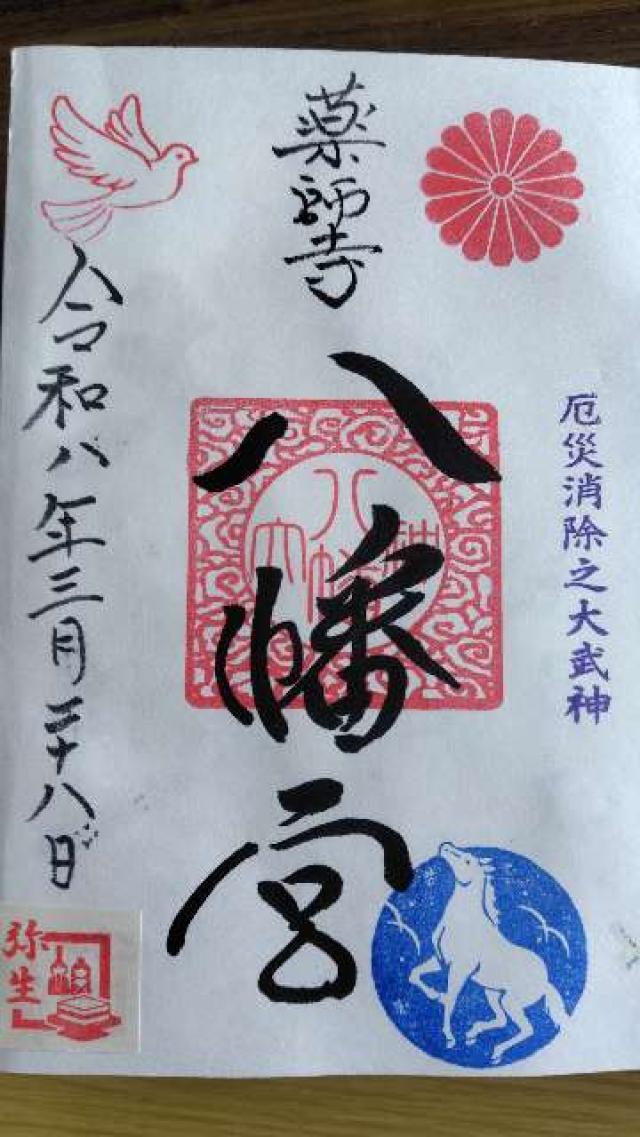 厄災消除之大武神
薬師寺
八幡宮
令和八年三月二十八日
弥生